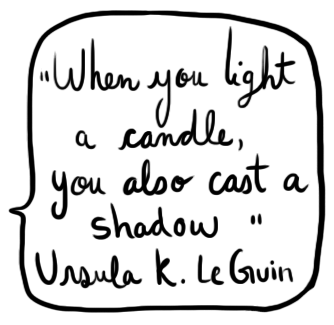 "When you light
a candle,
you also cast a
shadow "
Ursula K. Le Guin